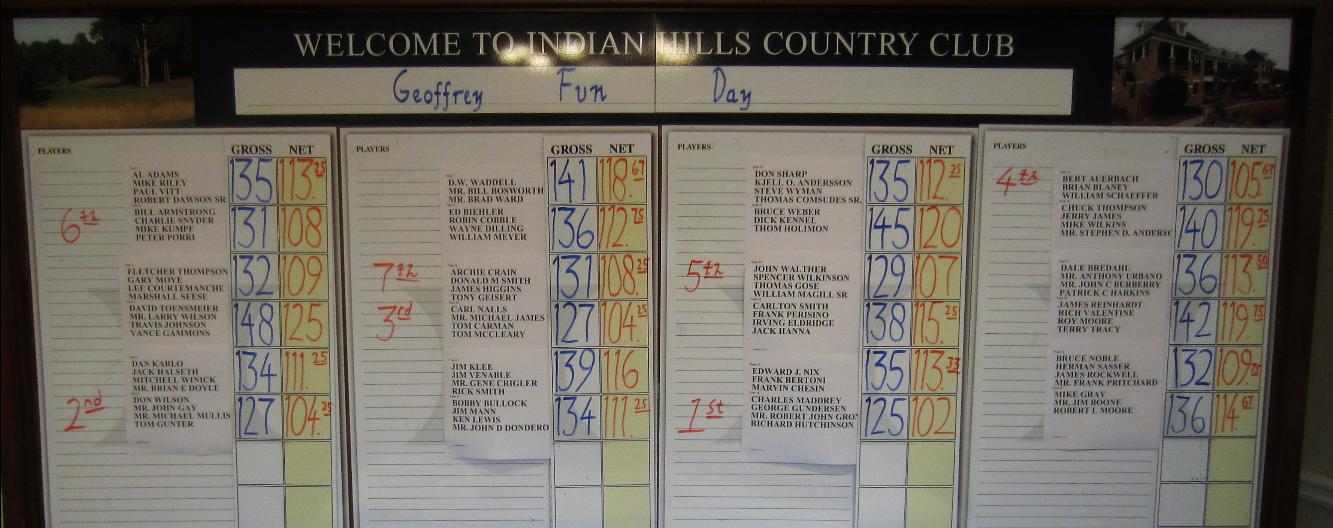 WELCOME TO INDIAN HILLS COUNTRY CLUB
Geoffrey Fun Day
PLAYERS GROSS NET
AL ADAMS
MIKE RILEY
PAUL VITT
ROBERT DAWSON SR
135 113.25
6th
BILL ARMSTRONG
CHARLIE SNYDER
MIKE KUMPF
PETER PORRI
131 108
FLETCHER THOMPSON
GARY MOYE
LEE COURTEMANCHE
MARSHALL SEESE
132 109
DAVID TOENSMEIER
MR. LARRY WILSON
TRAVIS JOHNSON
VANCE GAMMONS
148 125
DAN KARLO
JACK HALSETH
MITCHELL WINICK
MR. BRIAN E DOYLE
134 111.25
2nd
DON WILSON
MR. JOHN GAY
MR. MICHAEL MULLIS
TOM GUNTER
127 104.25
PLAYERS GROSS NET
D.W. WADDELL
MR. BILL BOSWORTH
MR. BRAD WARD
141 118.67
ED BIEHLER
ROBIN COBBLE
WAYNE DILLING
WILLIAM MEYER
136 112.75
7th
ARCHIE CRAIN
DONALD M SMITH
JAMES HIGGINS
TONY GEISERT
131 108.25
3rd
CARL NALLS
MR. MICHAEL JAMES
TOM CARMAN
TOM MCCLEARY
127 104.25
JIM KLEE
JIM VENABLE
MR. GENE CRIGLER
RICK SMITH
139 116
BOBBY BULLOCK
JIM MANN
KEN LEWIS
MR. JOHN D DONDERO
134 111.25
PLAYERS GROSS NET
DON SHARP
KJELL O. ANDERSSON
STEVE WYMAN
THOMAS COMSUDES SR.
135 112.25
BRUCE WEBER
DICK KENNEL
THOM HOLIMON
145 120
5th
JOHN WALTHER
SPENCER WILKINSON
THOMAS GOSE
WILLIAM MAGILL SR
129 107
CARLTON SMITH
FRANK PERISINO
IRVING ELDRIDGE
JACK HANNA
138 115.25
EDWARD J. NIX
FRANK BERTONI
MARVIN CHESIN
135 113.33
1st
CHARLES MADDREY
GEORGE GUNDERSEN
MR. ROBERT JOHN GRO
RICHARD HUTCHINSON
125 102
PLAYERS GROSS NET
4th
BERT AUERBACH
BRIAN BLANEY
WILLIAM SCHAEFFER
130 105.67
CHUCK THOMPSON
JERRY JAMES
MIKE WILKINS
MR. STEPHEN D. ANDERSO
140 119.25
DALE BREDAHL
MR. ANTHONY URBANO
MR. JOHN C BURBERRY
PATRICK C HARKINS
136 113.50
JAMES REINHARDT
RICH VALENTINE
ROY MOORE
TERRY TRACY
142 119.75
BRUCE NOBLE
HERMAN SASSER
JAMES ROCKWELL
MR. FRANK PRITCHARD
132 109.25
MIKE GRAY
MR. JIM BOONE
ROBERT L MOORE
136 114.67